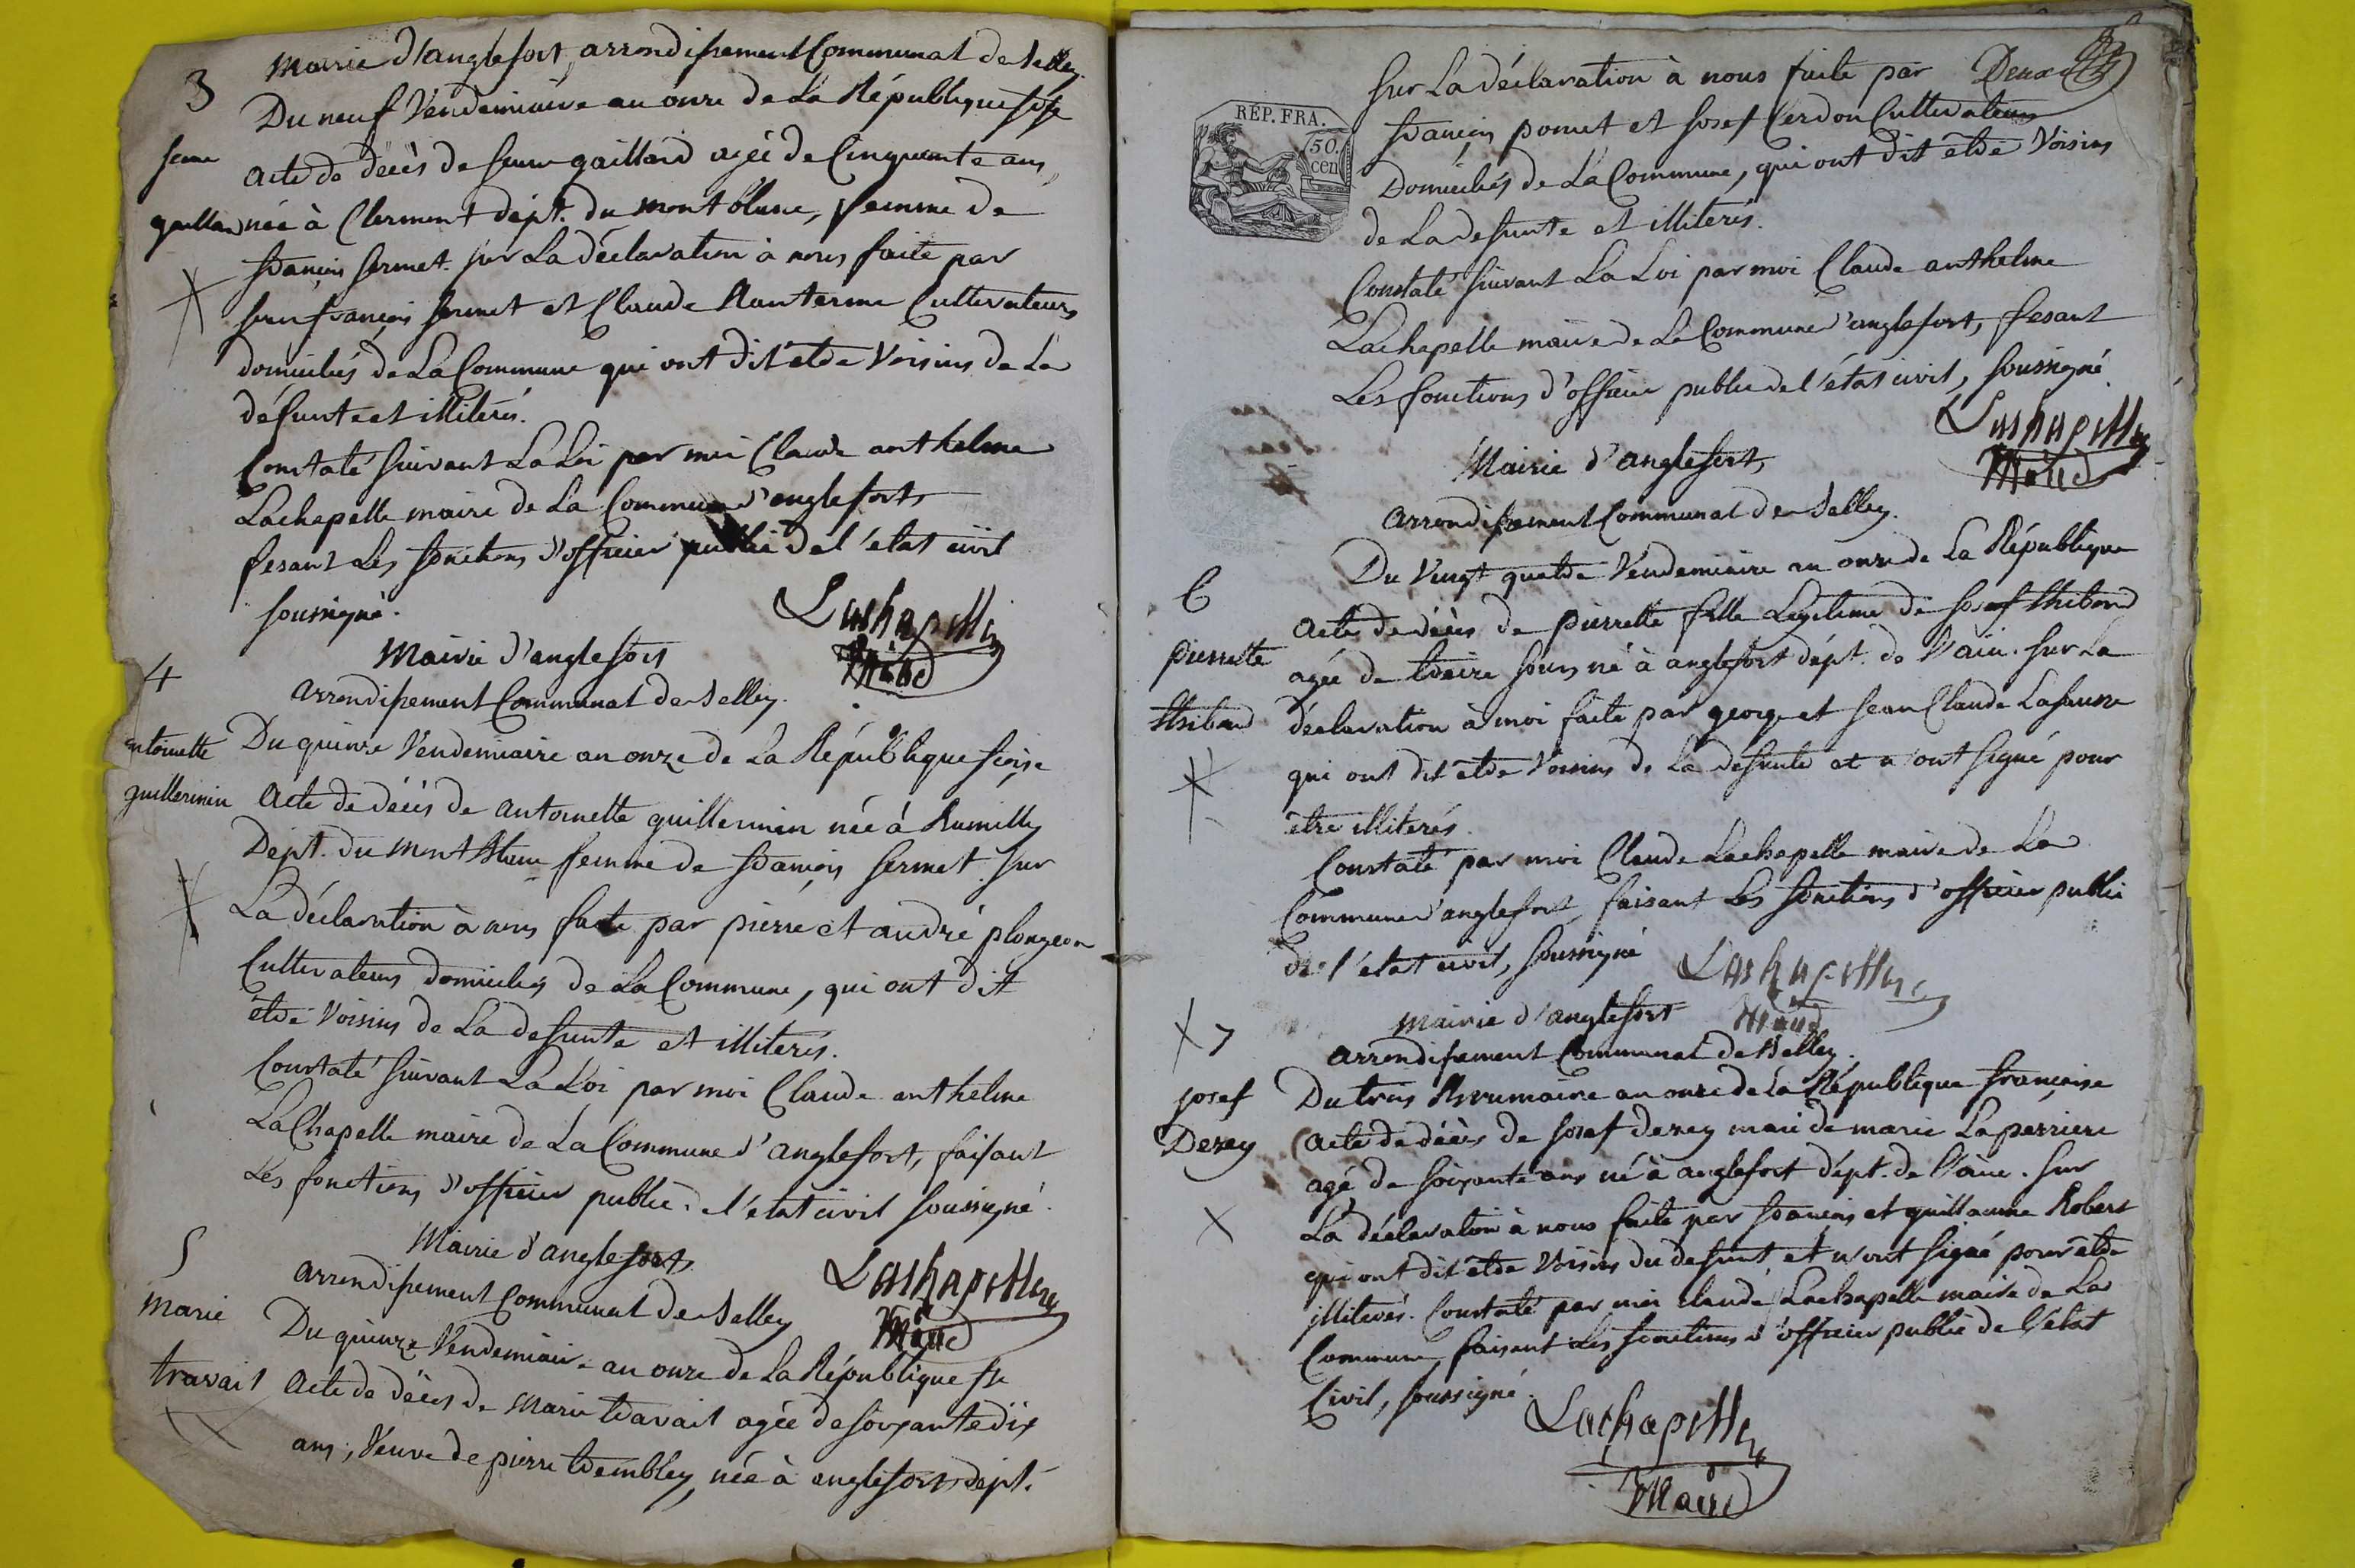 3
Mairie d'anglefort, arrondissement Communal de Belley.
Du neuf Vendemiaire an onze de La République
Jeanne
Acte de décès de Jeanne gaillard agée de Cinquante ans,
gaillard
née à Clermont dépt. du mont blanc, femme de
françois fermet. sur La déclaration à nous faite par
Jean françois fermet et Claude Cultivateurs
domiciliés de La Commune qui ont dit être Voisins de La
défunte et illiterés.
Constaté suivant La Loi par moi Claude anthelme
Lachapelle maire de La Commune d'anglefort,
fesant Les fonctions d'officier public de l'état civil
soussigné.
Lachapelle
Maire
4
Mairie d'anglefort
arrondissement Communal de Belley.
antoinette
Du quinze Vendemiaire an onze de La République
guillermin
Acte de décès de antoinette guillermin née à Rumilly
Dept. du Mont Blanc femme de françois fermet. sur
La déclaration à nous faite par pierre et andré plongeon
Cultivateurs domiciliés de La Commune, qui ont dit
être Voisins de La defunte et illiterés.
Constaté suivant La Loi par moi Claude anthelme
LaChapelle maire de La Commune d'anglefort, faisant
Les fonctions d'officier public de l'état civil soussigné.
Lachapelle
Maire
5
Mairie d'anglefort
arrondissement Communal de Belley
marie
Du quinze Vendemiaire an onze de La République fse
travail
Acte de décès de Marie travail agée de soixante dix
ans, Veuve de pierre trembley, née à anglefort dépt.
Deux
RÉP. FRA.
50.
cen
sur La déclaration à nous faite par
françois pomet et Josef Cerdon Cultivateurs
Domiciliés de La Commune, qui ont dit être Voisins
de La defunte et illiterés.
Constaté suivant La Loi par moi Claude anthelme
Lachapelle maire de La Commune d'anglefort, fesant
Les fonctions d'officier public de l'état civil, soussigné
Lachapelle
Maire
Mairie d'anglefort,
arrondissement Communal de Belley.
6
Du Vingt quatre Vendemiaire an onze de La République
Acte de décès de pierrette fille Legitime de Josef thibaud
pierrette
agée de treize jours né à anglefort dépt. de l'ain. sur La
thibaud
déclaration à moi faite par george et Jean Claude Lafausse
qui ont dit être Voisins de La defunte et n'ont signé pour
être illiterés.
Constaté par moi Claude Lachapelle maire de La
Commune d'anglefort, faisant Les fonctions d'officier public
de l'état civil, soussigné
Lachapelle
Maire
7
Mairie d'anglefort
arrondissement Communal de Belley.
Josef
Du trois Brumaire an onze de la République française
Derey
Acte de décès de Josef derey mari de marie Laperriere
agé de soixante ans né à anglefort dépt. de l'ain. sur
La déclaration à nous faite par françois et guillaume Robert
qui ont dit être Voisins du defunt, et n'ont signé pour être
illiterés. Constaté par moi claude Lachapelle maire de La
Commune, faisant Les fonctions d'officier public de l'état
Civil, soussigné.
Lachapelle
Maire